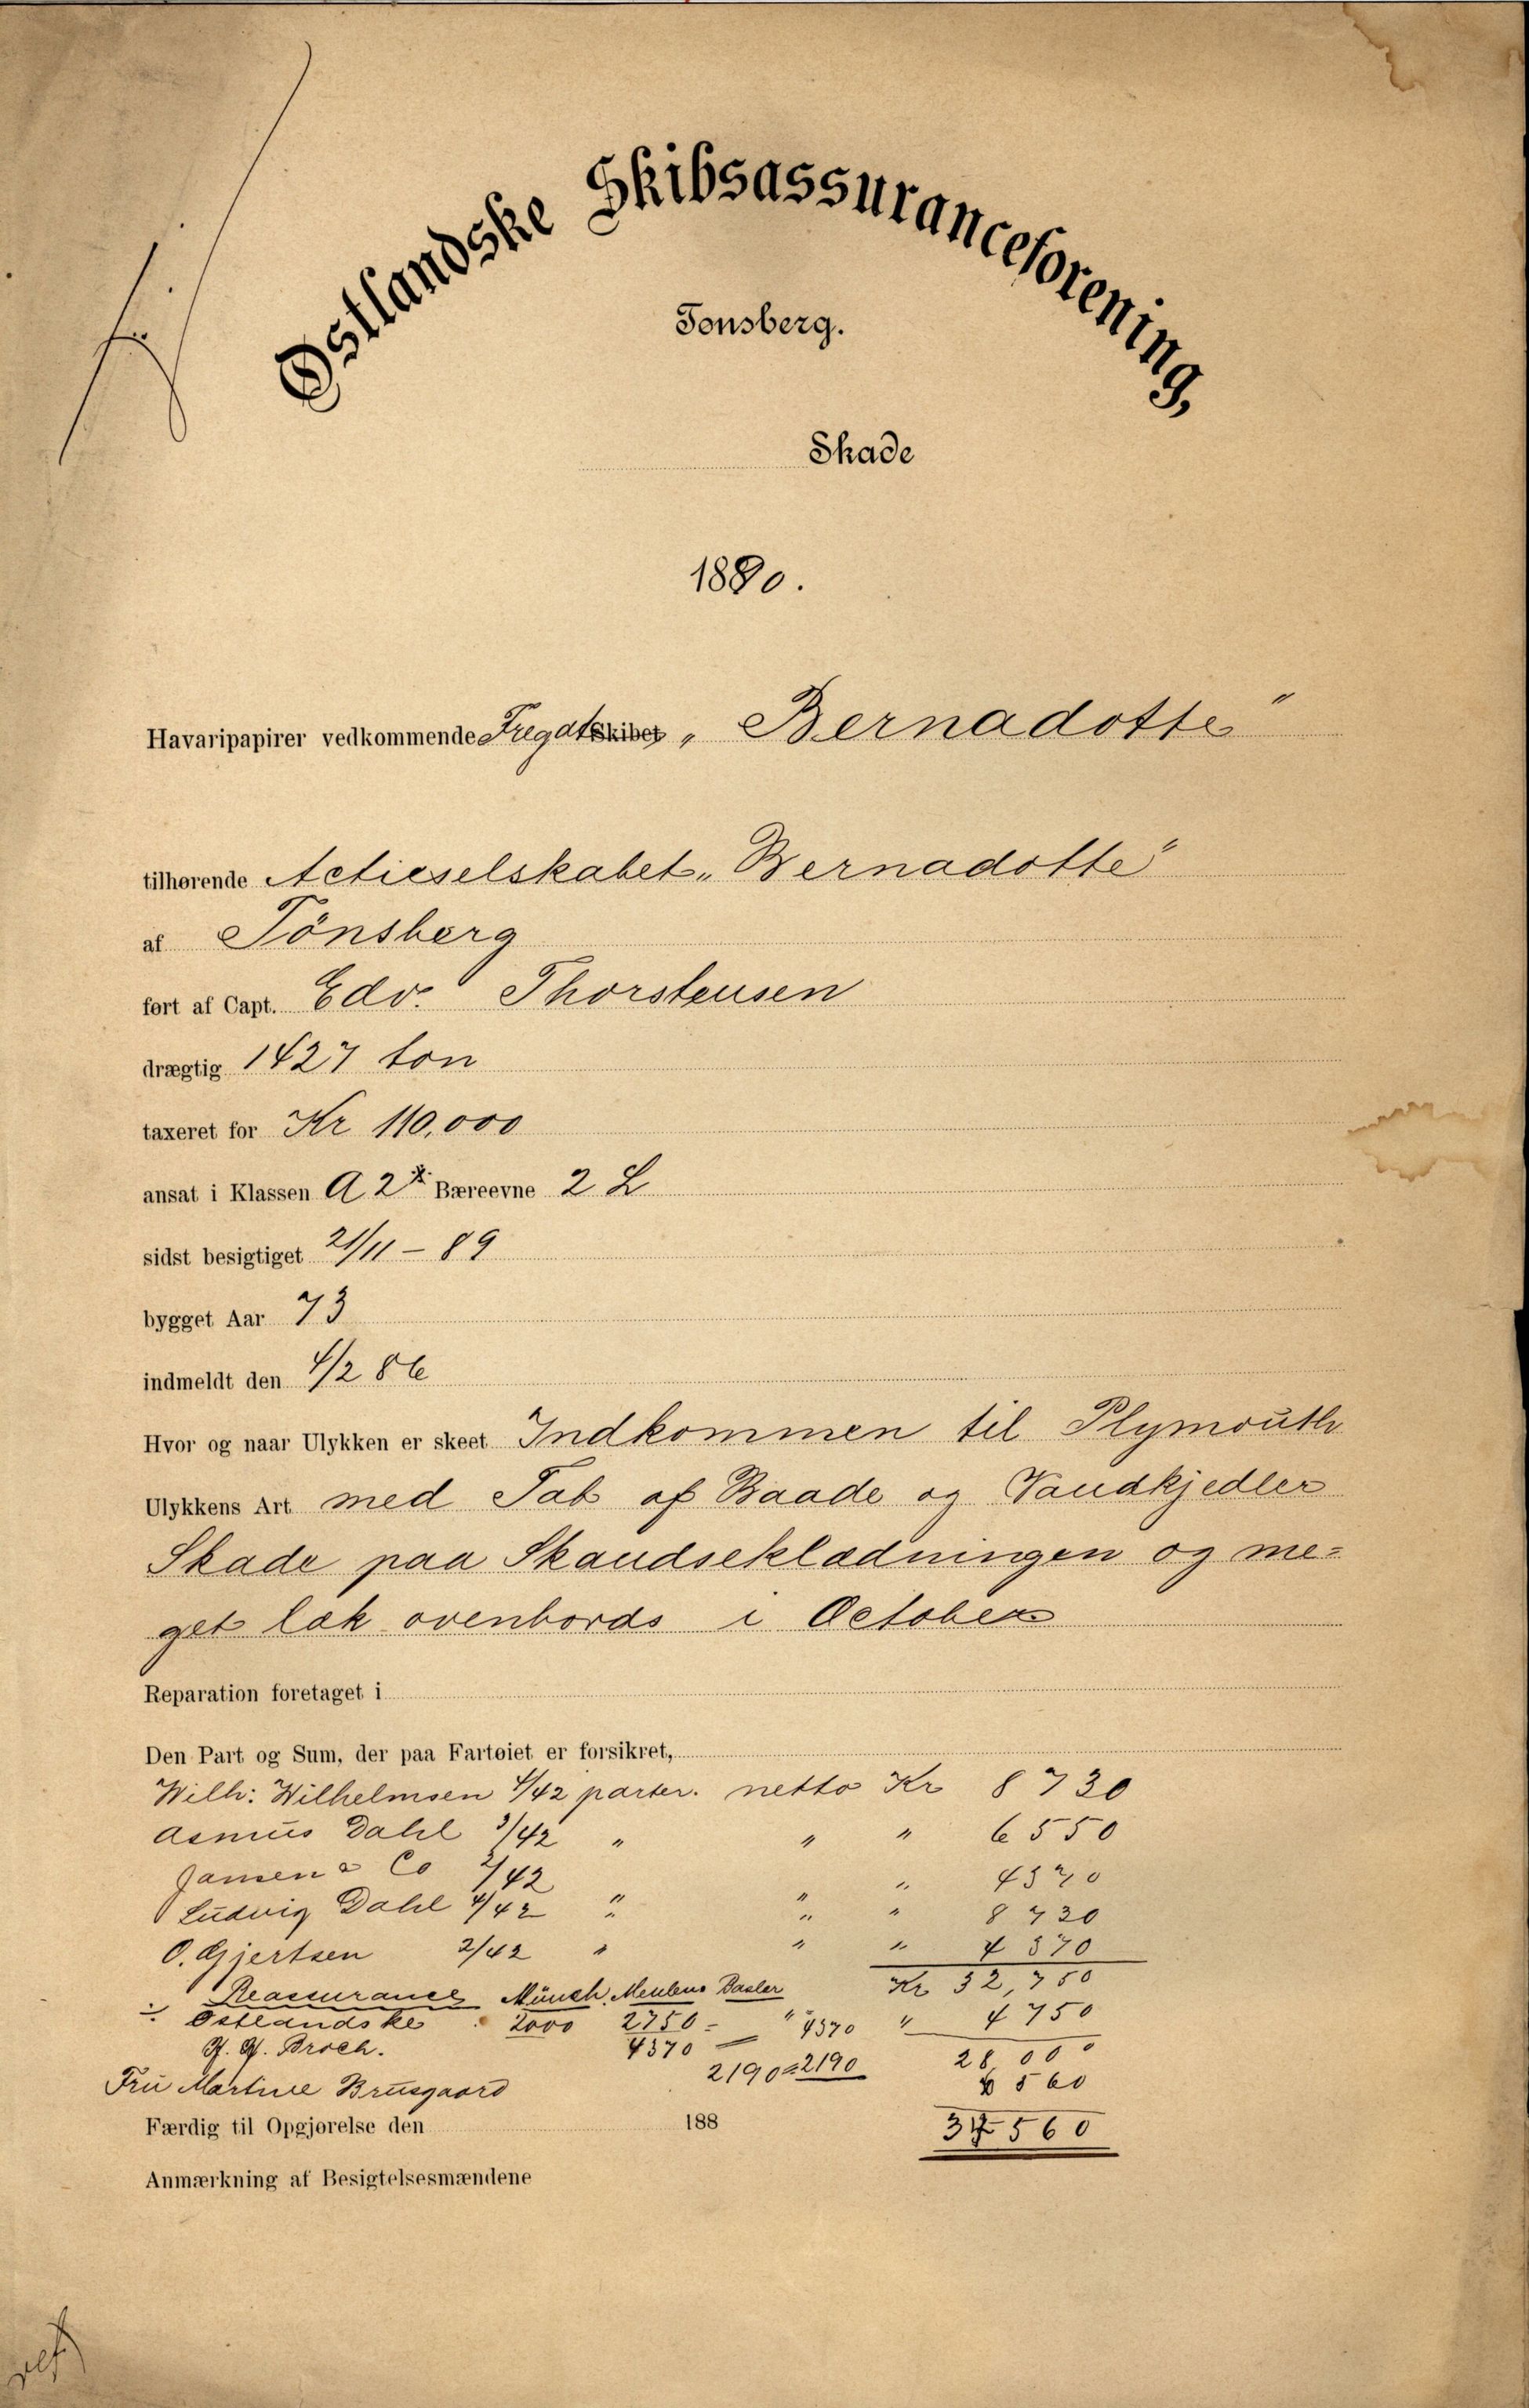 Østlandske Skibsassuranceforening,
Tønsberg.
Skade
1890.
Havaripapirer vedkommende Fregat Skibet „Bernadotte"
tilhørende Actieselskabet „Bernadotte"
af Tönsberg
ført af Capt. Edv. Thorstensen
drægtig 1427 ton
taxeret for Kr 110,000
ansat i Klassen A 2 Bæreevne 2 L
sidst besigtiget 21/11 - 89
bygget Aar 73
indmeldt den 4/2 86
Hvor og naar Ulykken er skeet Indkommen til Plymouth
Ulykkens Art med Tab af Baade og Vandkjedler
Skade paa Skandseklædningen og me=
get læk ovenbords i October
Reparation foretaget i
Den Part og Sum, der paa Fartøiet er forsikret,
Wilh: Wilhelmsen 4/42 parter. netto Kr 8730
Asmus Dahl 3/42 " " " 6550
Jansen & Co 2/42 " 4370
Ludvig Dahl 4/42 " " " 8730
O. Gjertsen 2/42 " " " 4370
Kr 32,750
Reassurance Münch. Meulens Basler
÷ Østlandske 2000 2750 = " 4370 " 4750
4370
28,000
Broch.
2190 = 2190
Fru Martine Brusgaard
6560
Færdig til Opgjørelse den 188
34560
Anmærkning af Besigtelsesmændene